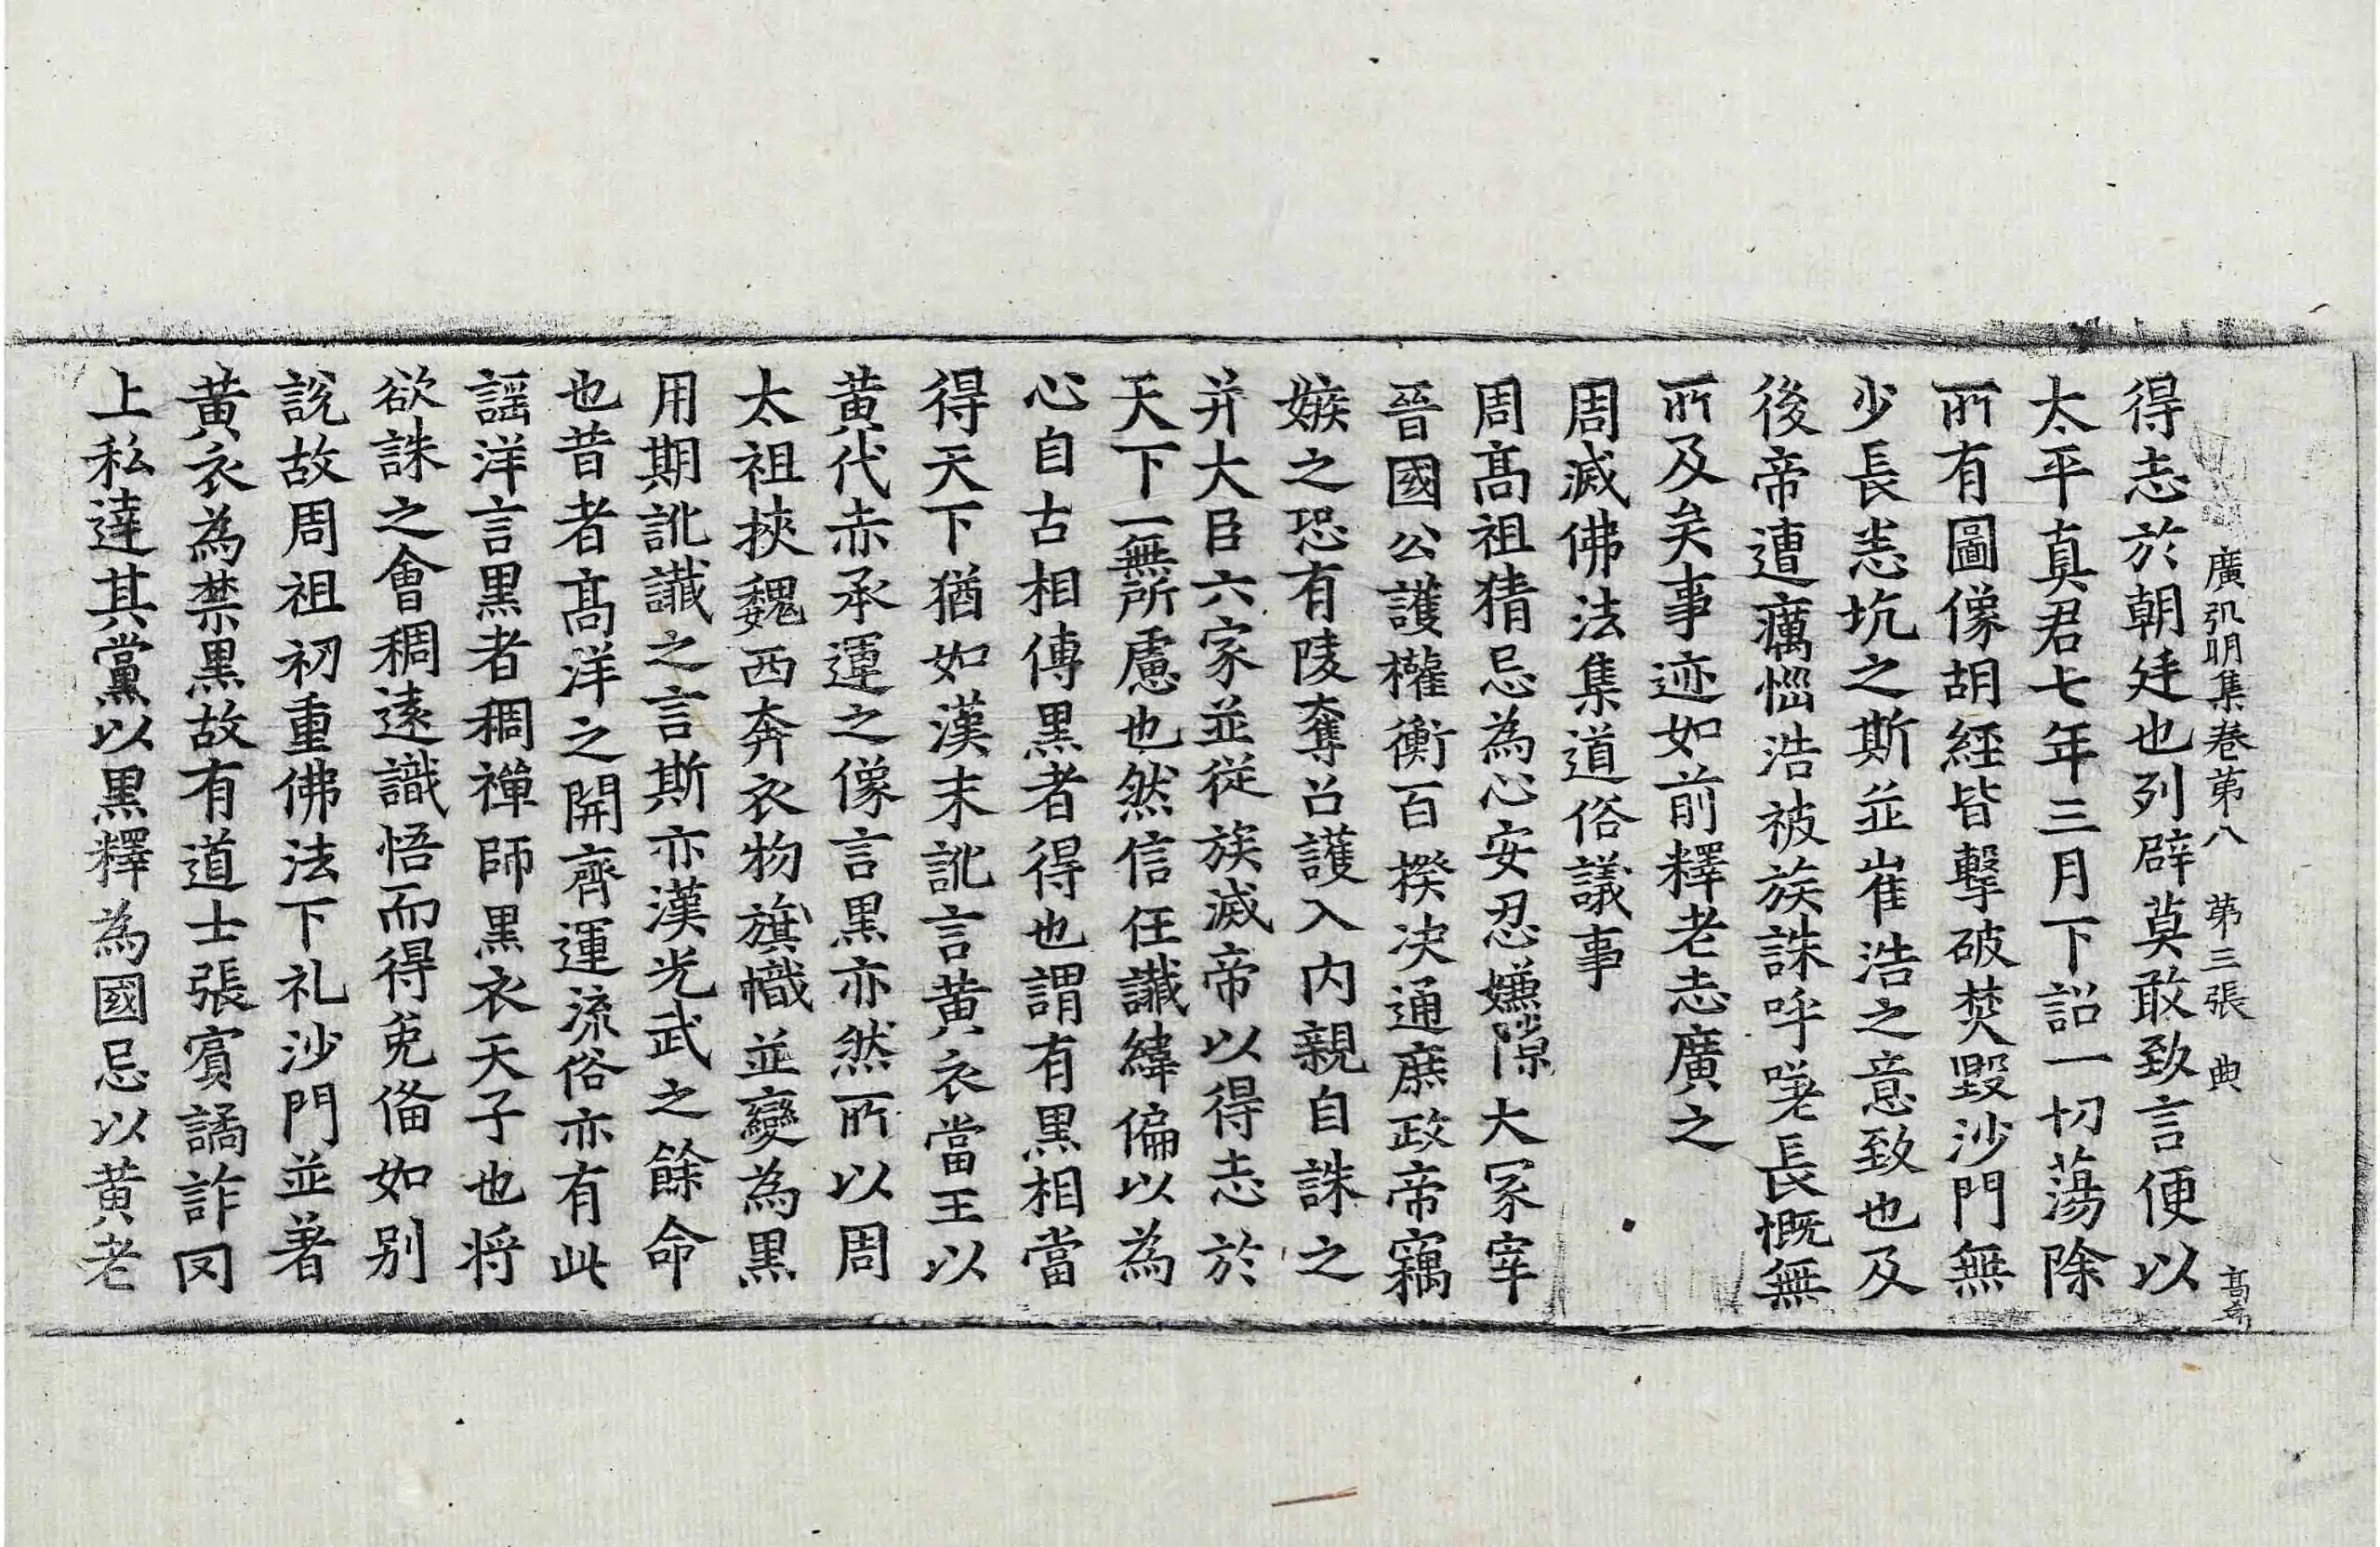 廣弘明集卷第八 第三張 典 髙
得志於朝廷也列辟莫敢致言便以
太平真君七年三月下詔一切蕩除
所有圖像胡經皆擊破焚毀沙門無
少長恙坑之斯並崔浩之意致也及
後帝遭癘惱浩被族誅呼嗟長慨無
所及矣事迹如前釋老志廣之
周滅佛法集道俗議事
周髙祖猜忌為心安忍嫌隙大冢宰
晉國公護權衡百揆决通庶政帝竊
嫉之恐有陵奪召護入內親自誅之
并大臣六家並從族滅帝以得志於
天下一無所慮也然信任讖緯偏以為
心自古相傳黒者得也謂有黒相當
得天下猶如漢末訛言黄衣當王以
黄代赤承運之像言黒亦然所以周
太祖挾魏西奔衣物旗幟並變為黒
用期訛讖之言斯亦漢光武之餘命
也昔者髙洋之開齊運流俗亦有此
謡洋言黒者稠禪師黒衣天子也將
欲誅之會稠遠識悟而得免俻如别
說故周祖初重佛法下礼沙門並著
黄衣為禁黒故有道士張賓譎詐罔
上私達其黨以黒釋為國忌以黄老